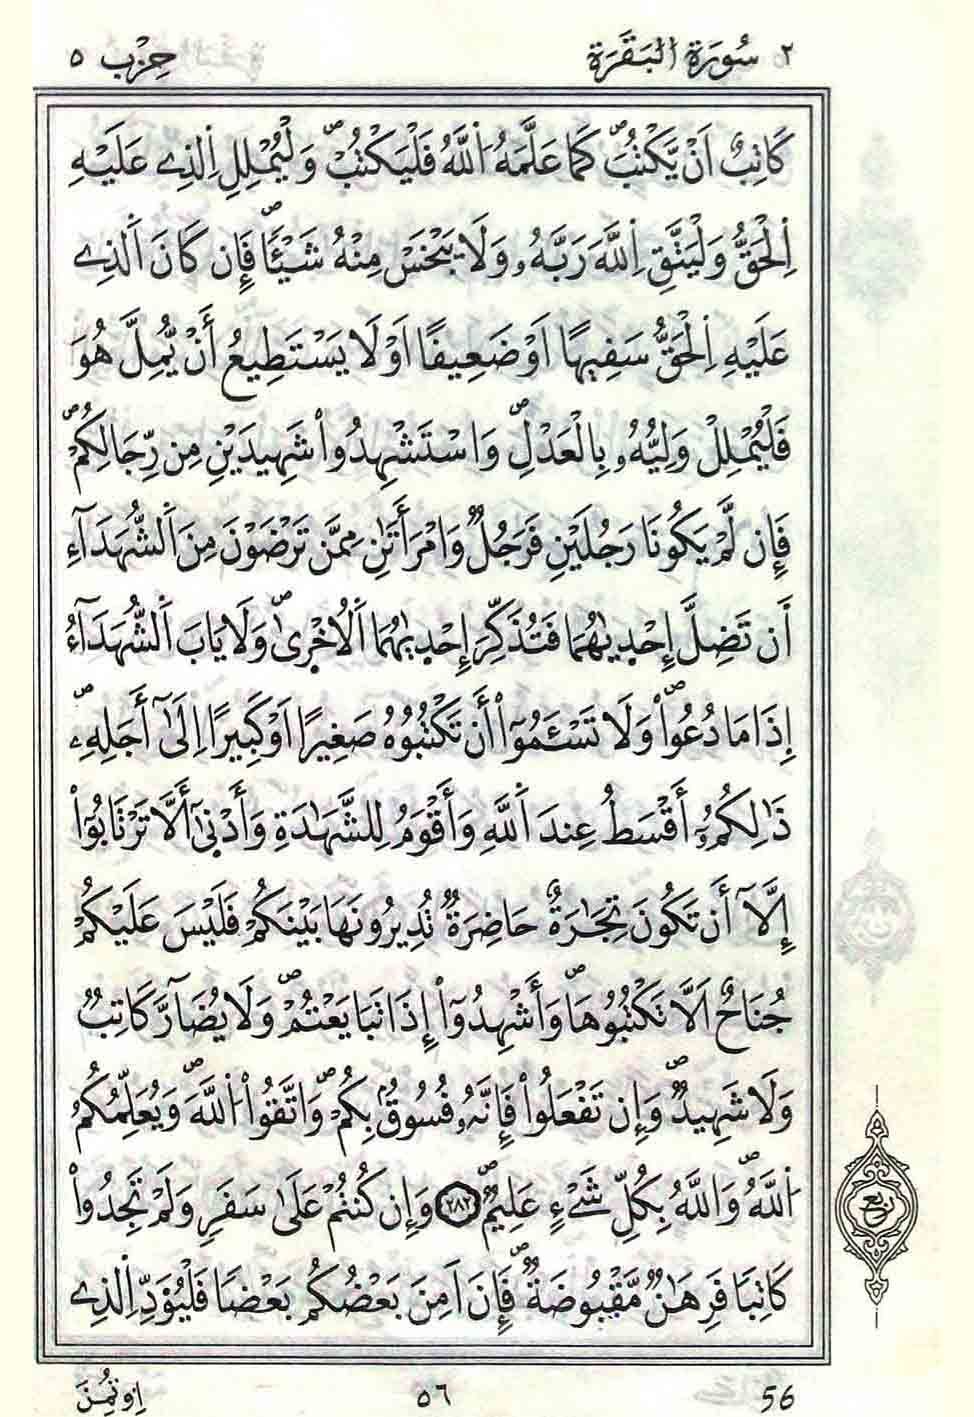 ٢ سُورَةُ الْبَقَرَةِ حِزْب ٥
كَاتِبٌ اَنْ يَّكْتُبَ كَمَا عَلَّمَهُ اُ۬للَّهُ فَلْيَكْتُبْ وَلْيُمْلِلِ اِ۬لذِے عَلَيْهِ
اِ۬لْحَقُّ وَلْيَتَّقِ اِ۬للَّهَ رَبَّهُۥ وَلَا يَبْخَسْ مِنْهُ شَيْـٔاً فَإِن كَانَ اَ۬لذِے
عَلَيْهِ اِ۬لْحَقُّ سَفِيهاً اَوْ ضَعِيفًا اَوْ لَا يَسْتَطِيعُ أَنْ يُّمِلَّ هُوَ
فَلْيُمْلِلْ وَلِيُّهُۥ بِالْعَدْلِ وَاسْتَشْهِدُواْ شَهِيدَيْنِ مِن رِّجَالِكُمْ
فَإِن لَّمْ يَكُونَا رَجُلَيْنِ فَرَجُلٌ وَامْرَأَتَٰنِ مِمَّن تَرْضَوْنَ مِنَ اَ۬لشُّهَدَآءِ
أَن تَضِلَّ إِحْد۪يٰهُمَا فَتُذَكِّرَ إِحْد۪يٰهُمَا اَ۬لُاخْر۪ىٰ وَلَا يَابَ اَ۬لشُّهَدَآءُ
إِذَا مَا دُعُواْ وَلَا تَسْـَٔمُوٓاْ أَن تَكْتُبُوهُ صَغِيراً اَوْ كَبِيراً اِلَىٰٓ أَجَلِهِۦ
ذَٰلِكُمُۥٓ أَقْسَطُ عِندَ اَ۬للَّهِ وَأَقْوَمُ لِلشَّهَٰدَةِ وَأَدْن۪ىٰٓ أَلَّا تَرْتَابُوٓاْ
إِلَّآ أَن تَكُونَ تِجَٰرَةٌ حَاضِرَةٌ تُدِيرُونَهَا بَيْنَكُمْ فَلَيْسَ عَلَيْكُمْ
جُنَاحٌ اَلَّا تَكْتُبُوهَا وَأَشْهِدُوٓاْ إِذَا تَبَايَعْتُمْ وَلَا يُضَآرَّ كَاتِبٌ
وَلَا شَهِيدٌ وَإِن تَفْعَلُواْ فَإِنَّهُۥ فُسُوقٌ بِكُمْ وَاتَّقُواْ اُ۬للَّهَ وَيُعَلِّمُكُمُ
اُ۬للَّهُ وَاللَّهُ بِكُلِّ شَےْءٍ عَلِيمٌ ٢٨٢ وَإِن كُنتُمْ عَلَىٰ سَفَرٍ وَلَمْ تَجِدُواْ
كَاتِبًا فَرِهَٰنٌ مَّقْبُوضَةٌ فَإِنَ اَمِنَ بَعْضُكُم بَعْضاً فَلْيُؤَدِّ اِ۬لذِے
ربع
اِو۟تُمِنَ ٥٦ 56